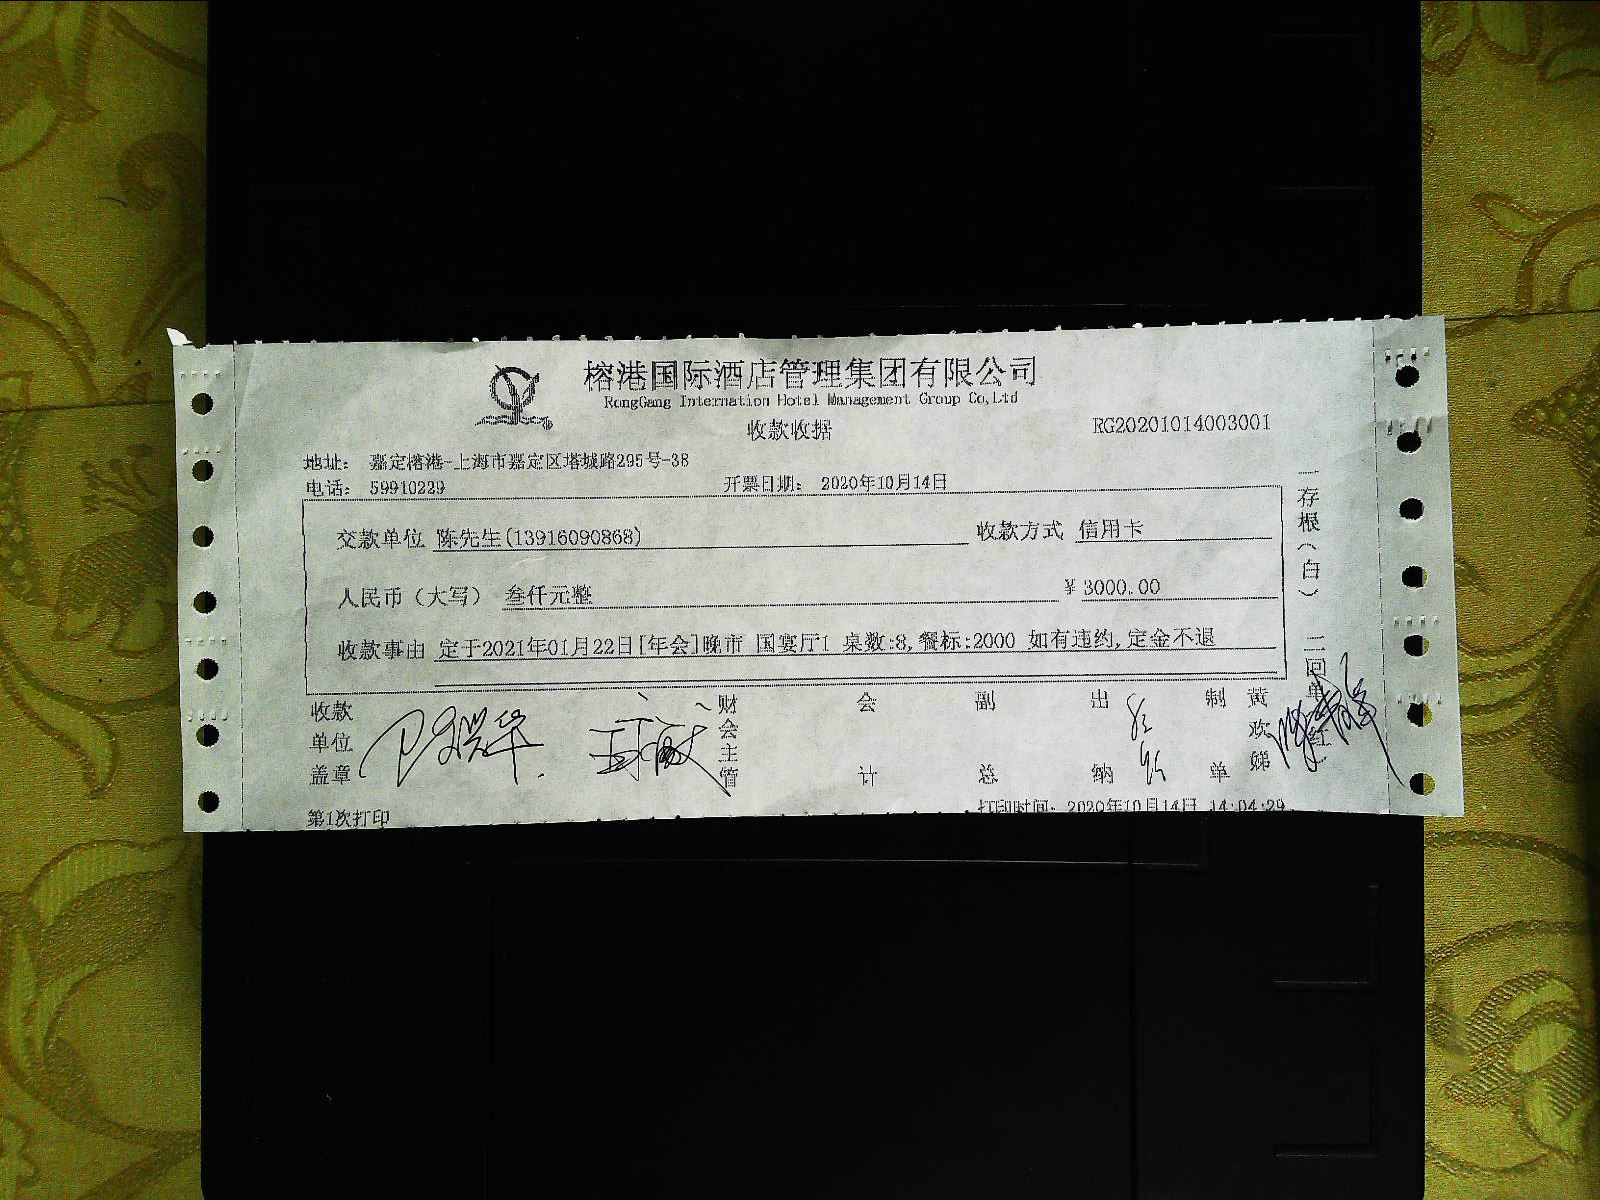 榕港国际酒店管理集团有限公司
RongGang Internation Hotel Management Group Co,Ltd
收款收据
RG20201014003001
地址： 嘉定榕港-上海市嘉定区塔城路295号-38
电话： 59910229 开票日期： 2020年10月14日
交款单位 陈先生(13916090868) 收款方式 信用卡
人民币（大写） 叁仟元整 ¥ 3000.00
收款事由 定于2021年01月22日[年会]晚市 国宴厅1 桌数:8,餐标:2000 如有违约,定金不退
收款单位盖章 财会主管 会计 副总 出纳 制单 黄欢娣
一存根（白） 二回单（红）
第1次打印 打印时间： 2020年10月14日 14:04:29